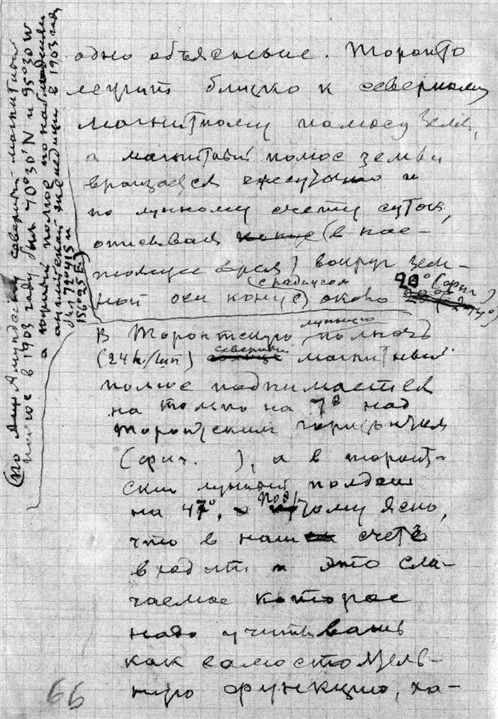 одно объясненье. Торонто
лежит близко к северному
магнитному полюсу Земли,
а магнитный полюс земли
вращается ежесуточно и
по лунному счету суток,
описывая (в нас-
тоящее время) вокруг зем-
ной оси конус с радиусом около 20° (фиг )
В Торонтскую лунную полночь
(24h/лун) северный магнитный
полюс поднимается
на только на 7° над
Торонтским горизонтом
(фиг. ), а в торонт-
ский лунный полдень
на 47°, поэтому ясно,
что в наш счет
входит и это сла-
гаемое которое
надо учитывать
как самостоятель-
ную функцию, ха-
(по Амундсену северный магнитный
полюс в 1903 году был 70°30'N и 95°30'W
а южный полюс по наблюдениям
английской экспедиции в 1903 год
был 72°41'S и
156°25'E)
66